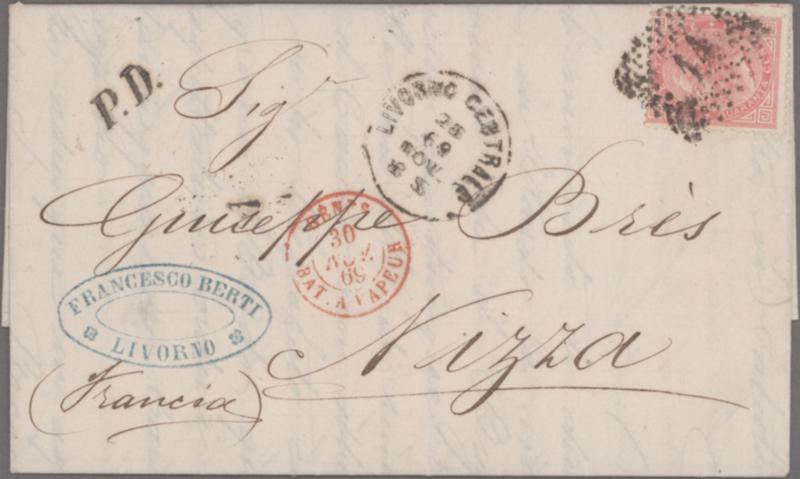 P.D.
Sig.r
LIVORNO CENTRALE
28
NOV
69
14
QUARANTA C
Giuseppe Brès
GÊNES
30
NOV
69
BAT. A VAPEUR
FRANCESCO BERTI
LIVORNO
Nizza
(Francia)